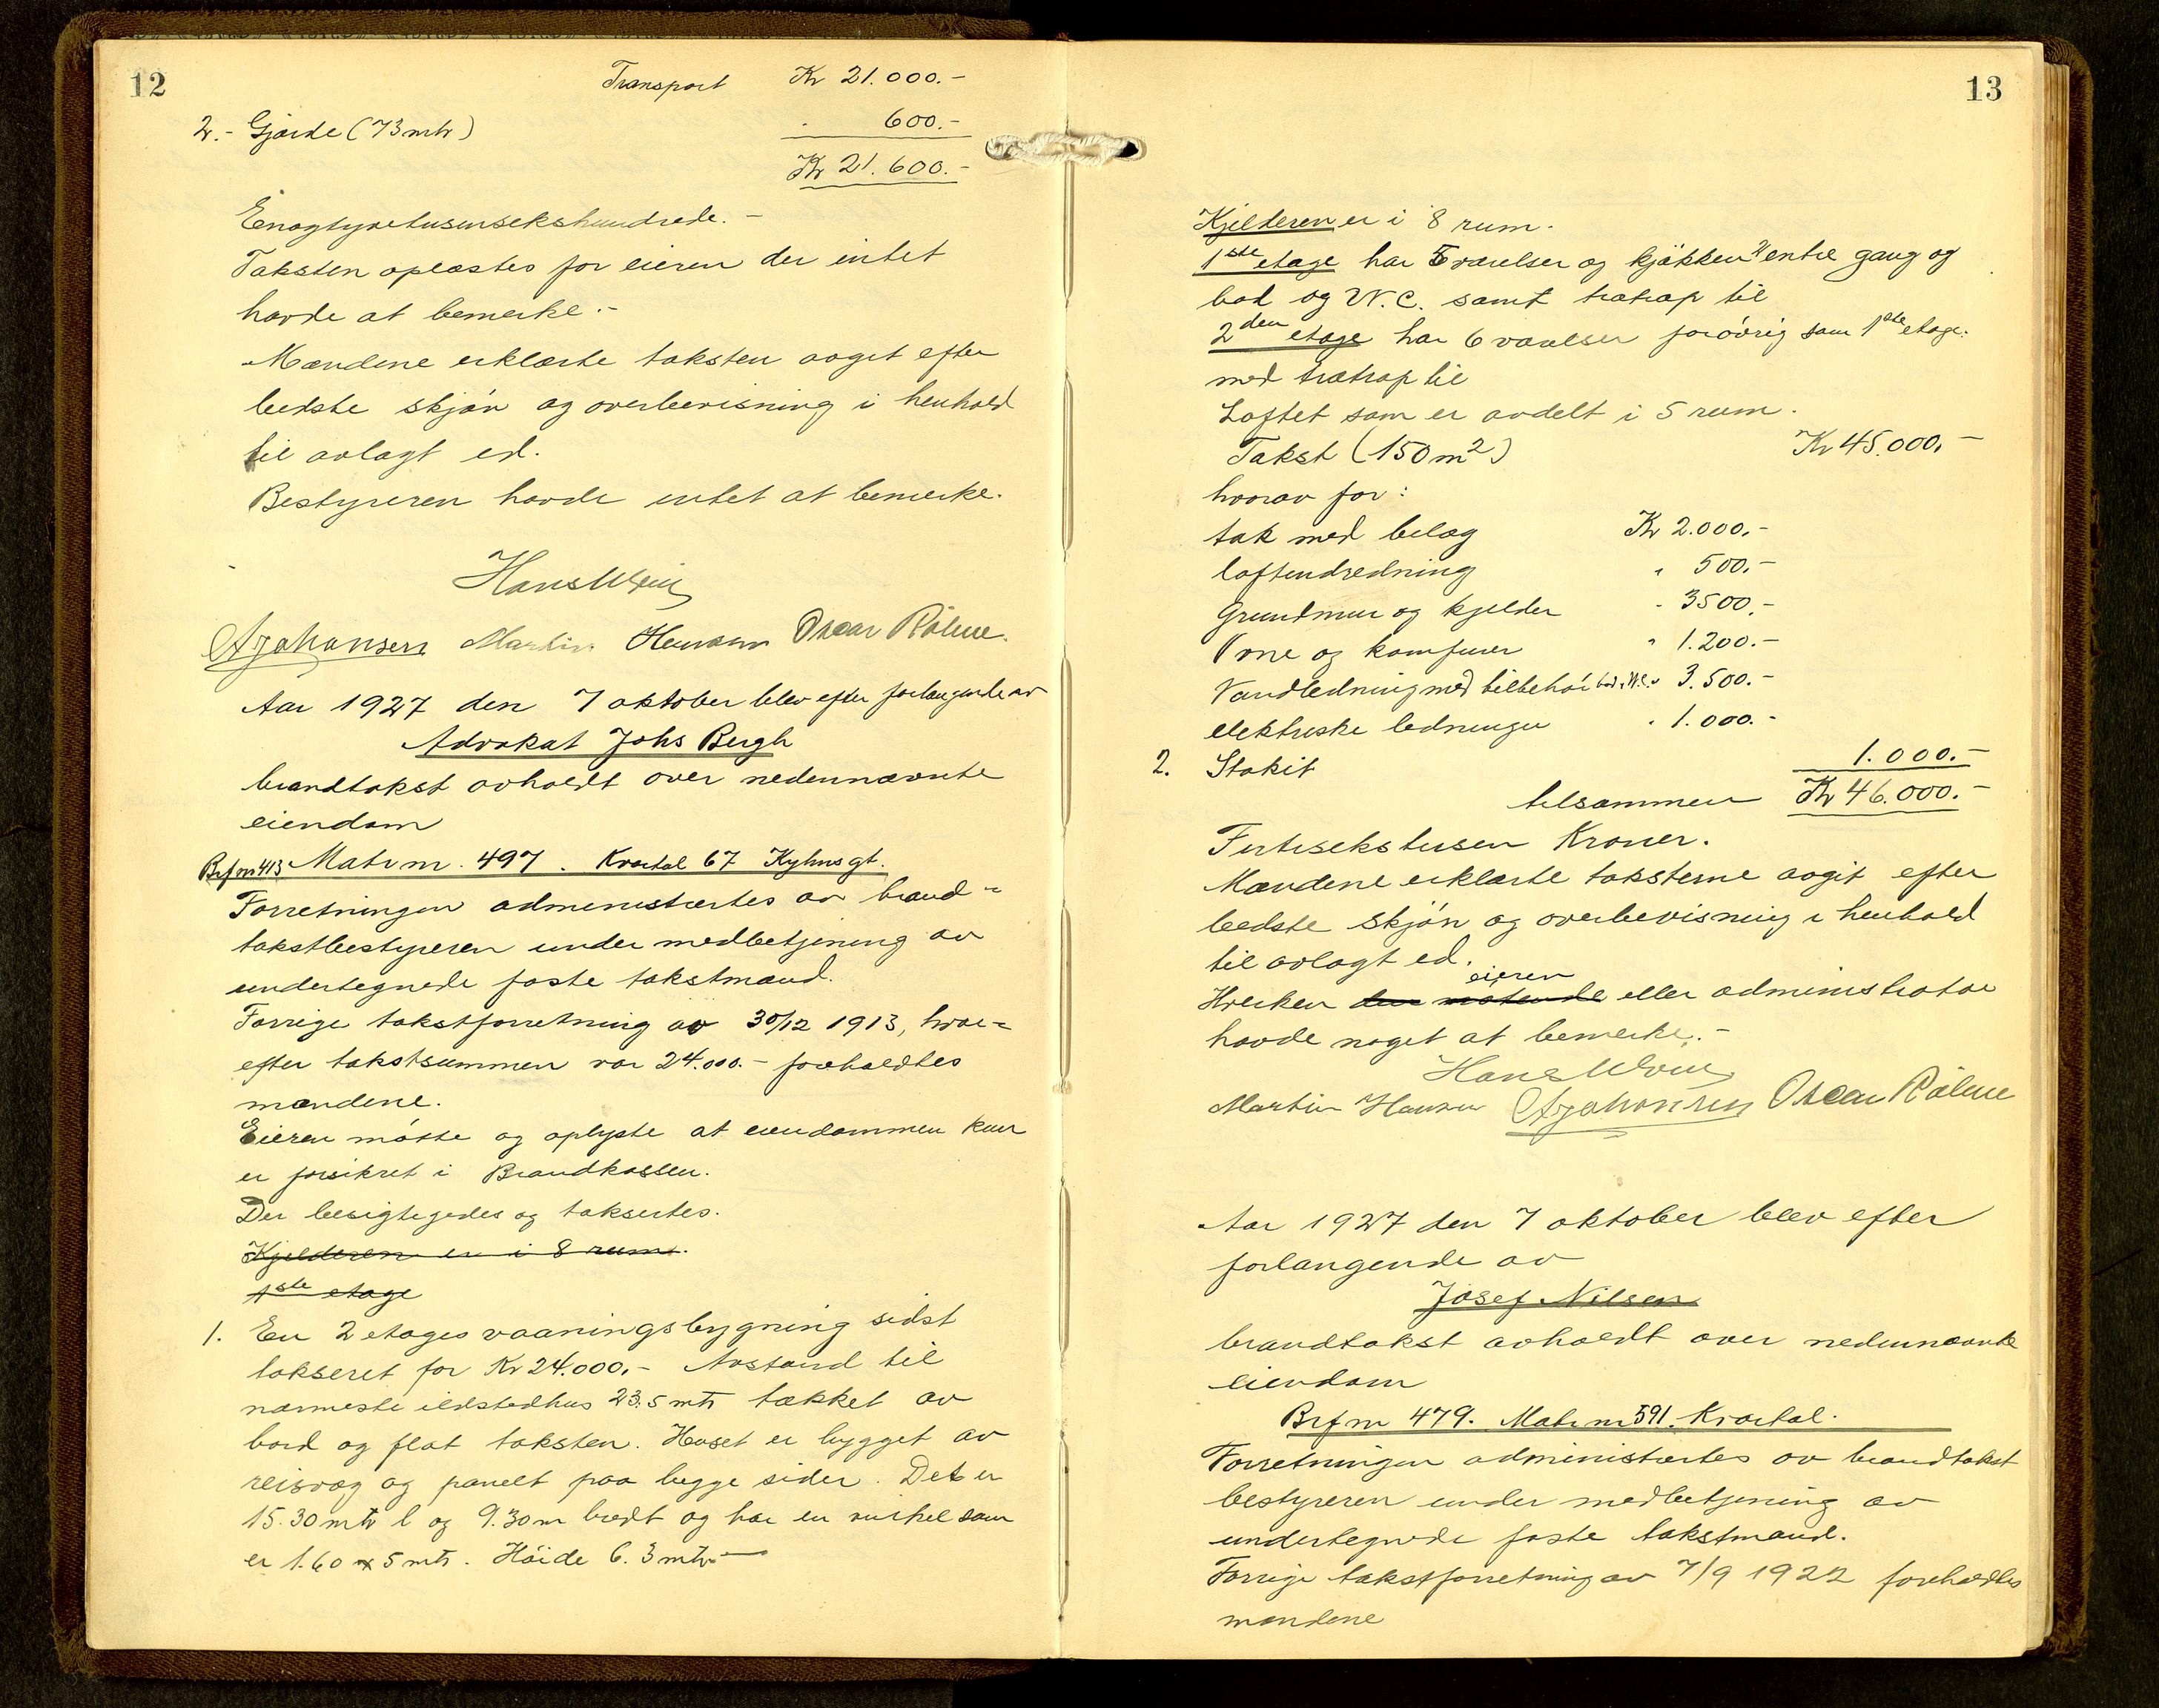 12
Transport Kr 21.000.-
2.- Gjærde (73 mtr) 600.-
Kr 21.600.-
Enogtyvetusensekshundrede.-
Taksten oplæstes for eieren der intet
havde at bemerke.-
Mændene erklærte taksten avgit efter
bedste skjøn og overbevisning i henhold
til avlagt ed.
Bestyreren havde intet at bemerke.
A Johansen Martin Hansen Oscar Rölme.
Aar 1927 den 7 oktober blev efter forlangende av
Advokat Johs Bergh
brandtakst avholdt over nedennævnte
eiendom
Brf nr 413 Matr nr. 497. Kvartal 67 Kyhnsgt.
Forretningen administrertes av brand-
takstbestyreren under medbetjening av
undertegnede faste takstmænd.
Forrige takstforretning av 30/12 1913, hvor-
efter takstsummen var 24.000.- foreholdtes
mændene.
Eieren møtte og oplyste at eiendommen kun
er forsikret i Brandkassen.
Der besigtigedes og taksertes.
Kjelderen er i 8 rum.
1ste etage
1. En 2 etages vaaningsbygning sidst
takseret for Kr 24.000.- Avstand til
nærmeste ildstedhus 23.5 mtr tækket av
bord og flat taksten. Huset er bygget av
reisværg og panelt paa begge sider. Det er
15.30 mtr l og 9.30 m bredt og har en vinkel som
er 1.60 x 5 mtr. Höide 6.3 mtr.-
13
Kjelderen er i 8 rum.
1ste etage har 5 værelser og kjøkken 2 entre gang og
bad og W.C. samt trætrap til
2den etage har 6 værelser forøvrig som 1ste etage.
med trætrap til
Loftet som er avdelt i 5 rum.
Takst (150 m2) Kr 45.000.-
hvorav for:
tak med belæg Kr 2.000.-
loftindredning " 500.-
Grundmur og kjelder " 3500.-
Ovne og komfurer " 1.200.-
Vandledning med tilbehør bad, W.C. " 3.500.-
elektriske ledninger " 1.000.-
2. Stakit 1.000.-
tilsammen Kr 46.000.-
Førtisekstusen Kroner.
Mændene erklærte taksterne avgit efter
bedste skjøn og overbevisning i henhold
til avlagt ed.
eieren
Hverken den møtende eller administrator
havde noget at bemerke.-
Martin Hansen A Johansen Oscar Rölme
Aar 1927 den 7 oktober blev efter
forlangende av
Josef Nilsen
brandtakst avholdt over nedennævnte
eiendom
Brf nr 479. Matr nr 591. Kvartal.
Forretningen administrertes av brandtakst
bestyreren under medbetjening av
undertegnede faste takstmænd.
Forrige takstforretning av 7/9 1922 foreholdtes
mændene